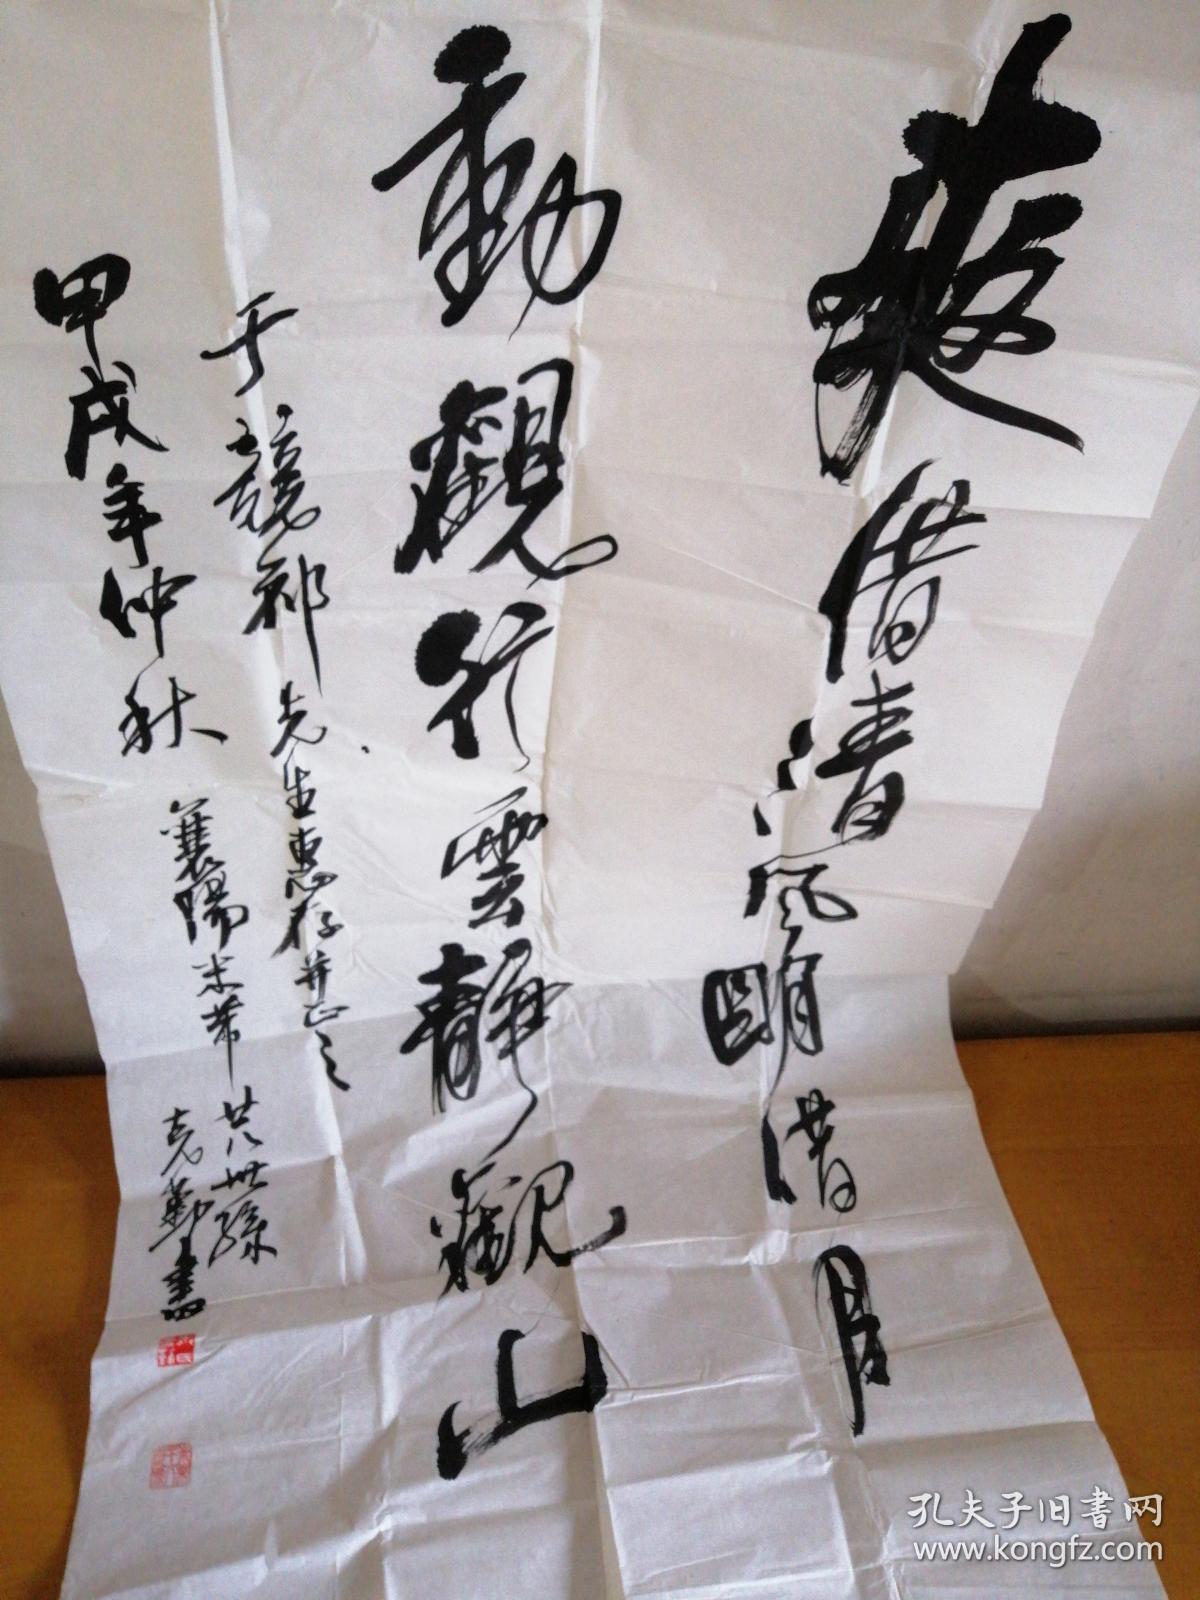 爽借清風明借月
動觀行雲靜觀山
于競祁先生惠存并正之
甲戌年仲秋
襄陽米芾廿八世孫
克勤書
孔夫子旧书网
www.kongfz.com